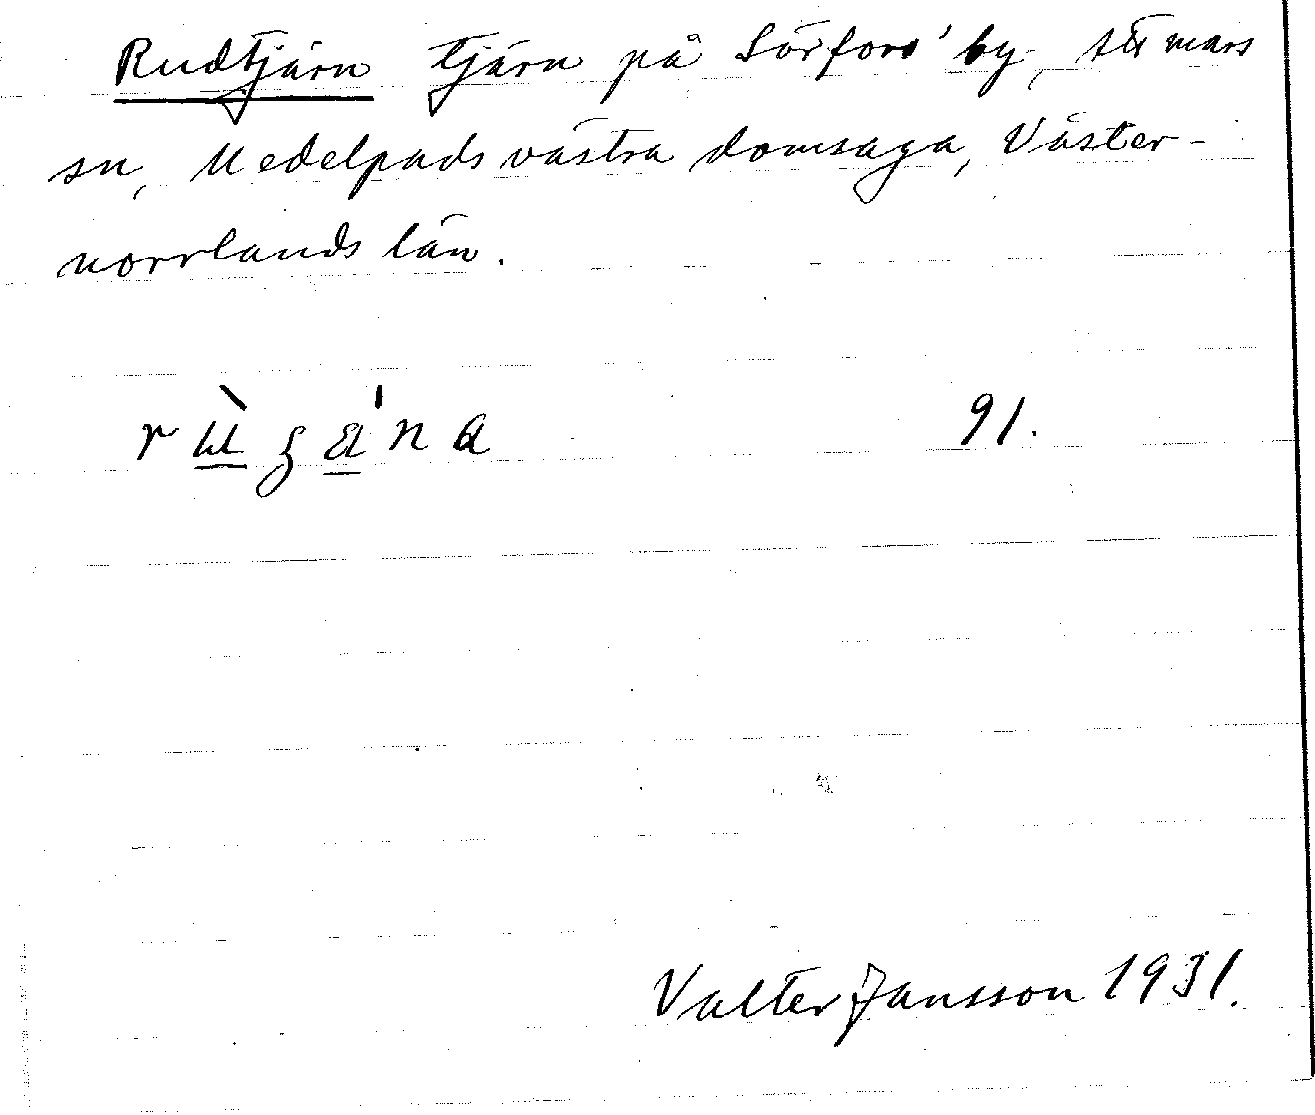 Rudtjärn tjärn på Sörfors' by, Attmars
sn, Medelpads västra domsaga, Väster-
norrlands län.
91.
Valter Jansson 1931.